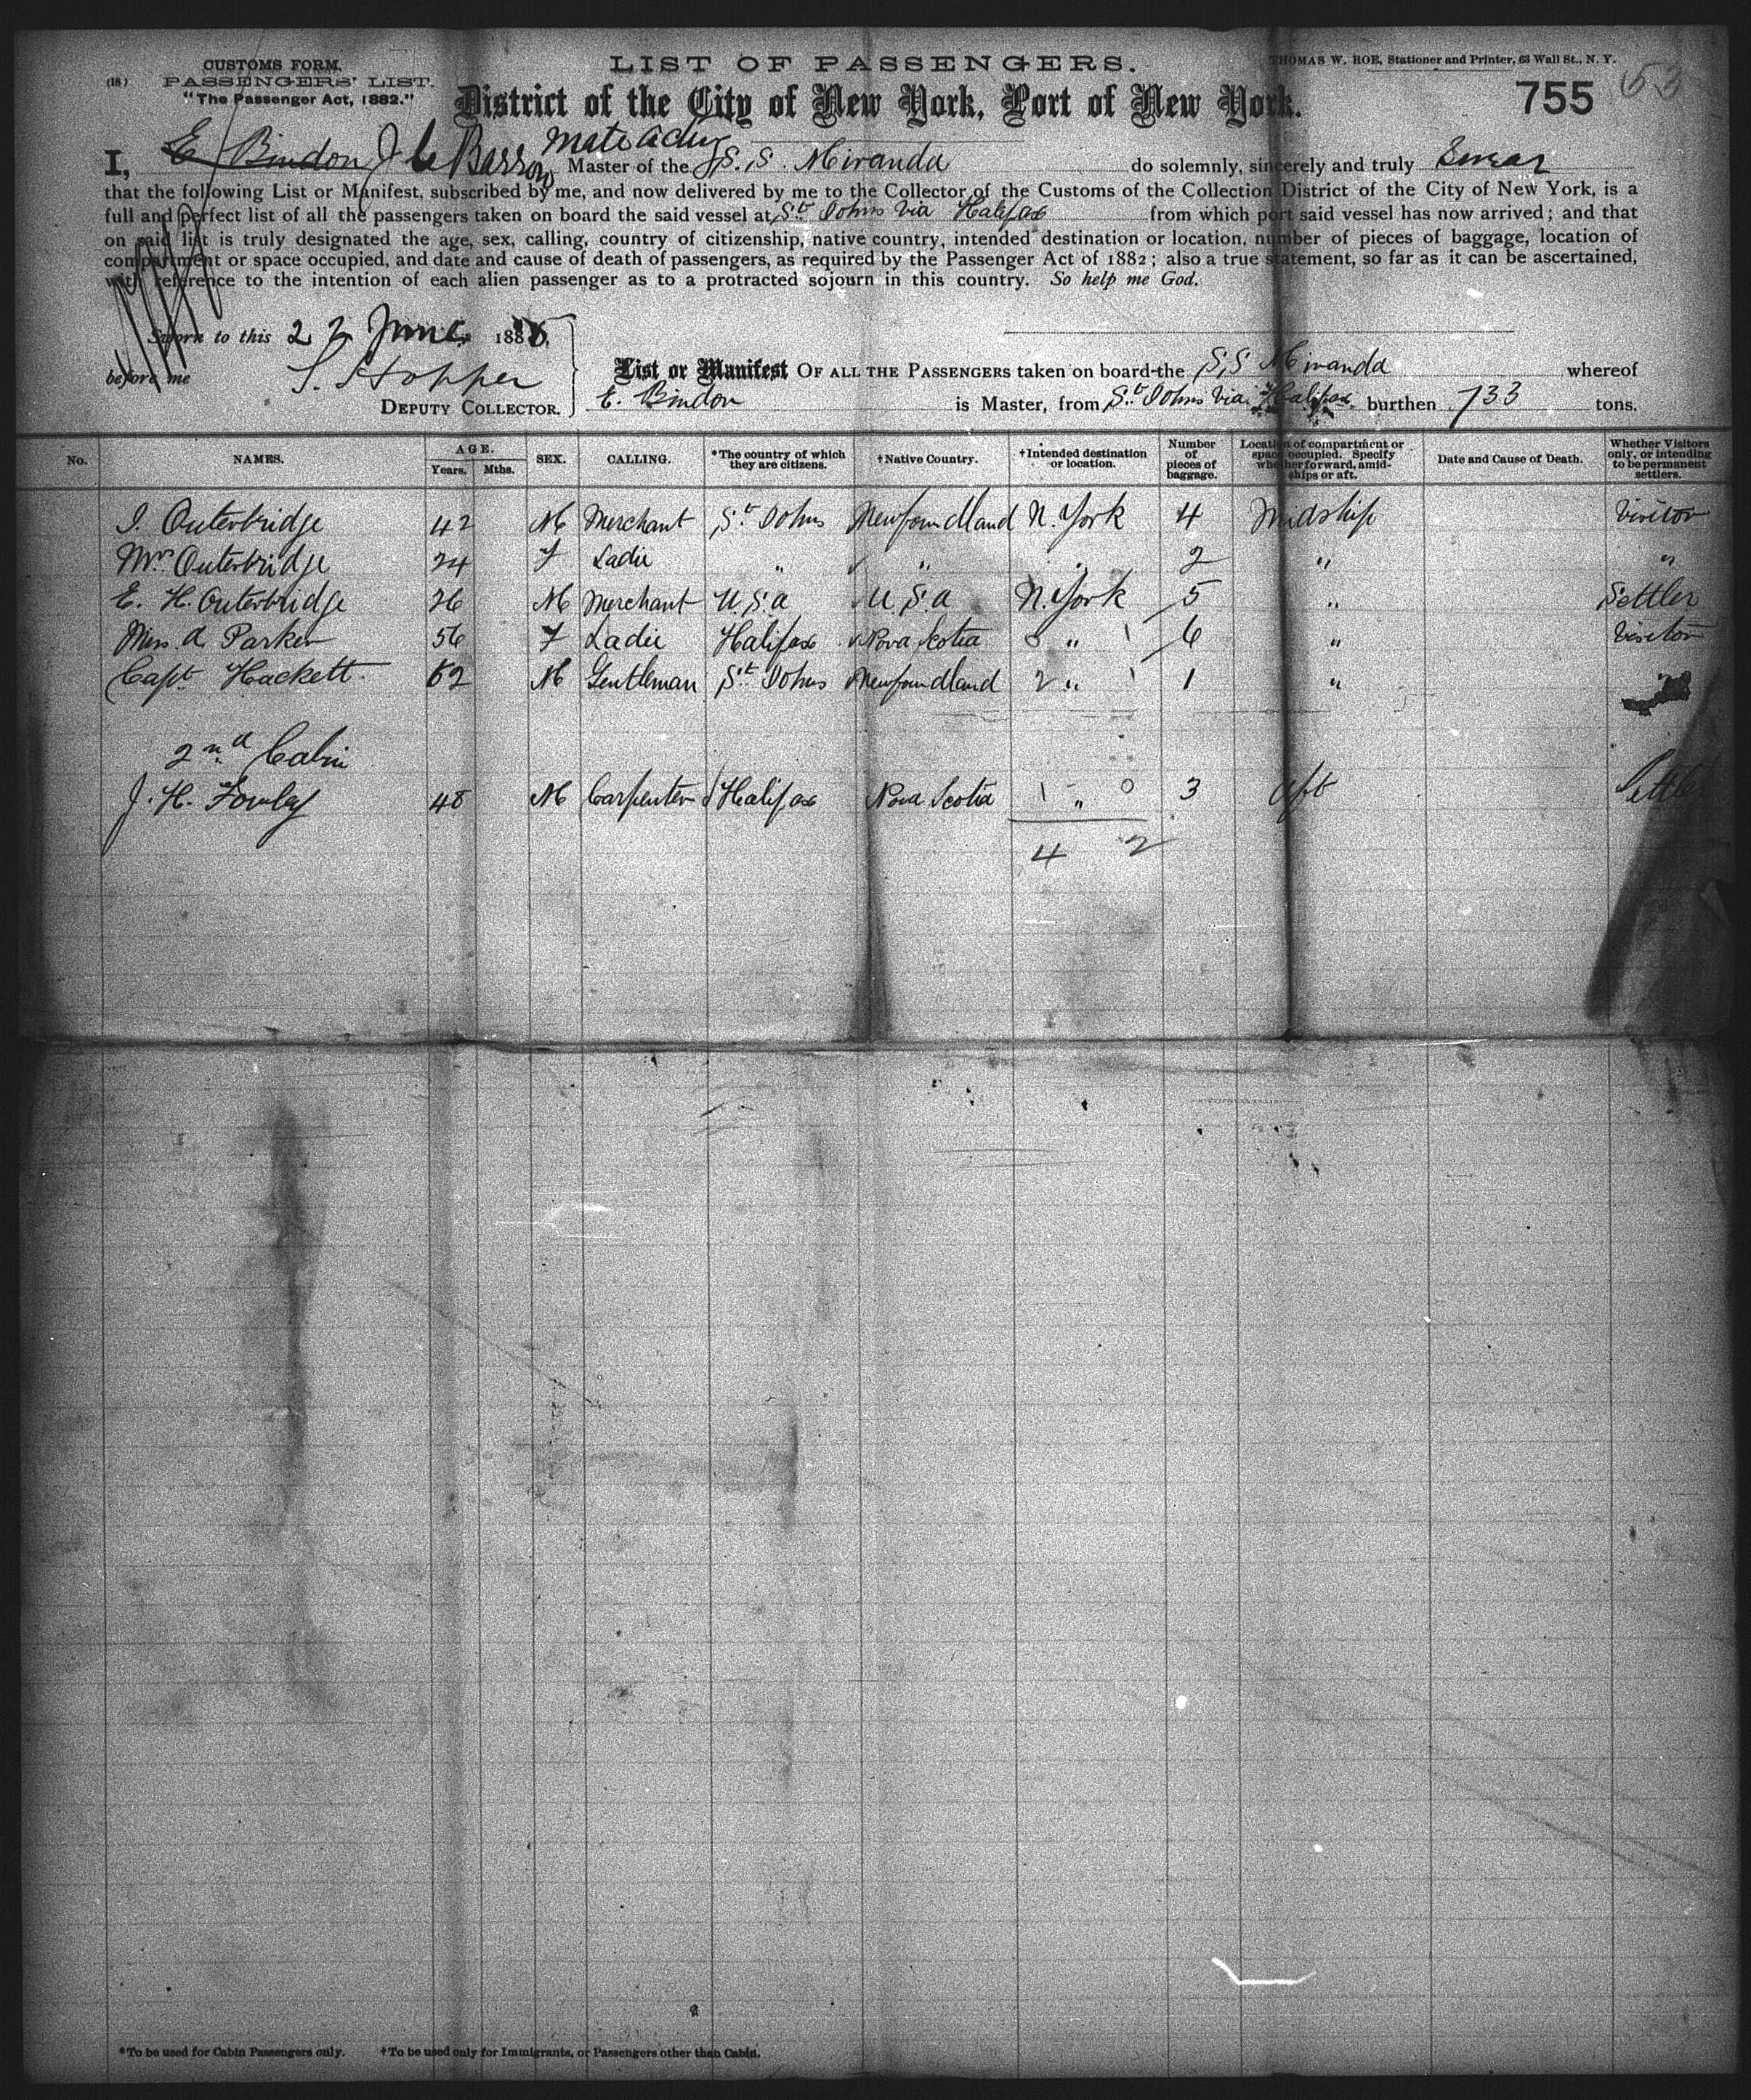 CUSTOMS FORM.
(18) PASSENGERS' LIST.
"The Passenger Act, 1882."
LIST OF PASSENGERS.
THOMAS W. ROE, Stationer and Printer, 63 Wall St., N. Y.
District of the City of New York, Port of New York.
755 53
mate acting
I, E Bindon Master of the S.S. Miranda do solemnly, sincerely and truly swear
that the following List or Manifest, subscribed by me, and now delivered by me to the Collector of the Customs of the Collection District of the City of New York, is a
full and perfect list of all the passengers taken on board the said vessel at St Johns via Halifax from which port said vessel has now arrived; and that
on said list is truly designated the age, sex, calling, country of citizenship, native country, intended destination or location, number of pieces of baggage, location of
compartment or space occupied, and date and cause of death of passengers, as required by the Passenger Act of 1882; also a true statement, so far as it can be ascertained,
with reference to the intention of each alien passenger as to a protracted sojourn in this country. So help me God.
Sworn to this 22 June 188
before me S. Hopper
DEPUTY COLLECTOR.
List or Manifest OF ALL THE PASSENGERS taken on board the S.S Miranda whereof
E. Bindon is Master, from St Johns via Halifax burthen 733 tons.
No. NAMES. AGE. Years. Mths. SEX. CALLING. *The country of which they are citizens. †Native Country. †Intended destination or location. Number of pieces of baggage. Location of compartment or space occupied. Specify whether forward, amidships or aft. Date and Cause of Death. Whether Visitors only, or intending to be permanent settlers.
J. Outerbridge 42 M Merchant St Johns Newfoundland N. York 4 Midship Visitor
Mrs Outerbridge 24 F Ladie " " " 2 " "
E. H. Outerbridge 26 M Merchant U.S.a U.S.a N. York 5 " Settler
Miss A Parker 56 F Ladie Halifax Nova Scotia 0 " 1 6 " Visitor
Capt Hackett 52 M Gentleman St Johns Newfoundland 2 " 1 1 "
2nd Cabin
J. H. 48 M Carpenter Halifax Nova Scotia 1 " 0 3 aft Settler
4 2
*To be used for Cabin Passengers only. †To be used only for Immigrants, or Passengers other than Cabin.